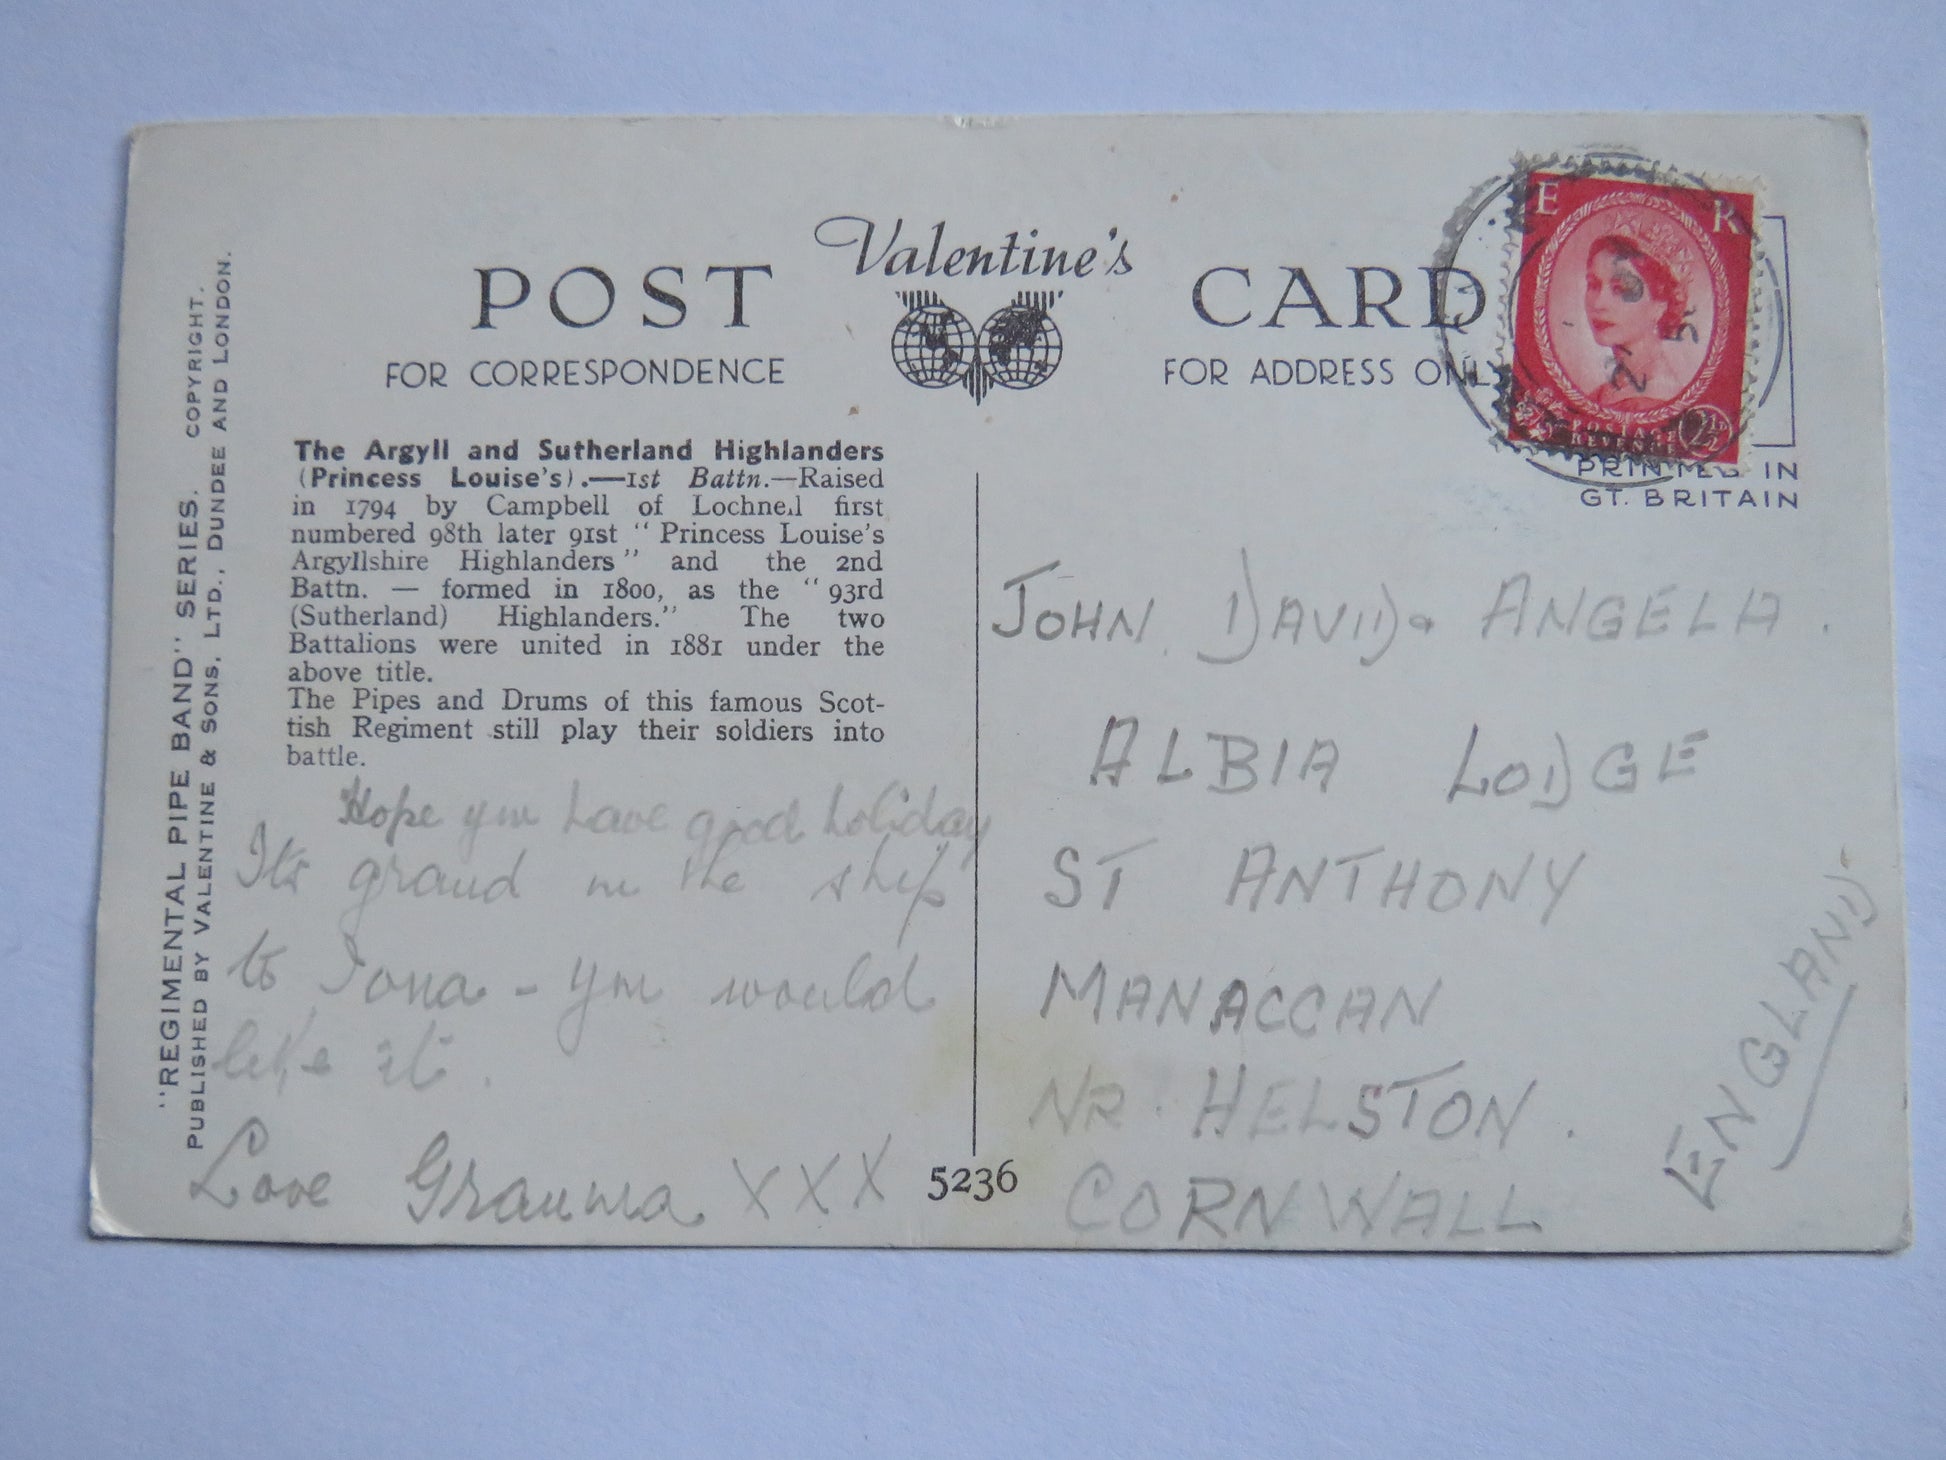 Valentine's
POST CARD
FOR CORRESPONDENCE
FOR ADDRESS ONLY
E R
POSTAGE
REVENUE
2½D
PRINTED IN
GT. BRITAIN
"REGIMENTAL PIPE BAND" SERIES. COPYRIGHT.
PUBLISHED BY VALENTINE & SONS, LTD., DUNDEE AND LONDON.
The Argyll and Sutherland Highlanders
(Princess Louise's).—1st Battn.—Raised
in 1794 by Campbell of Lochnell first
numbered 98th later 91st "Princess Louise's
Argyllshire Highlanders" and the 2nd
Battn. — formed in 1800, as the "93rd
(Sutherland) Highlanders." The two
Battalions were united in 1881 under the
above title.
The Pipes and Drums of this famous Scot-
tish Regiment still play their soldiers into
battle.
Hope you have good holiday
Its grand on the ship
to Iona - you would
like it.
Love Granma XXX
5236
JOHN. DAVID & ANGELA.
ALBIA LODGE
ST ANTHONY
MANACCAN
NR. HELSTON.
CORNWALL
ENGLAND